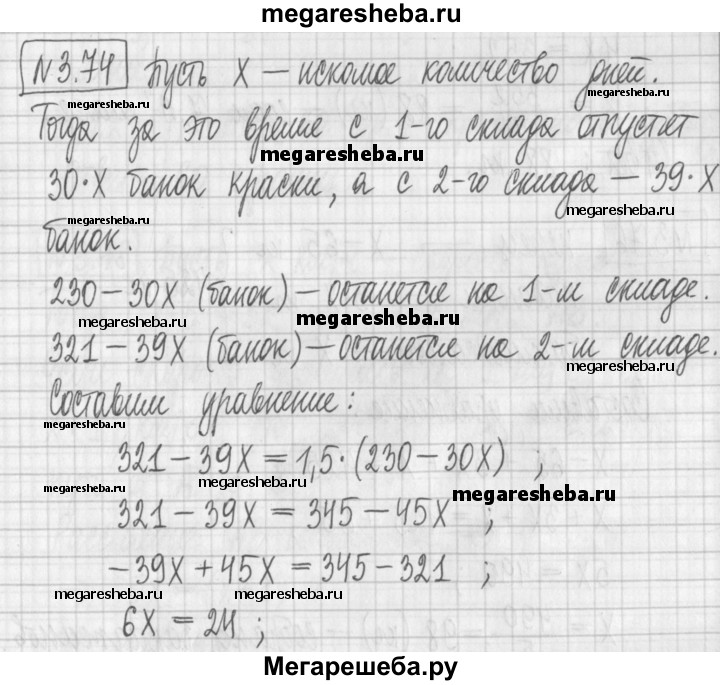 megaresheba.ru
N3.74 Пусть X — искомое количество дней.
megaresheba.ru
megaresheba.ru
Тогда за это время с 1-го склада отпустят
megaresheba.ru
30·X банок краски, а с 2-го склада — 39·X
megaresheba.ru
банок.
230 – 30X (банок) — останется на 1-м складе.
megaresheba.ru
megaresheba.ru
321 – 39X (банок) — останется на 2-м складе.
megaresheba.ru
Составим уравнение:
megaresheba.ru
321 – 39X = 1,5·(230 – 30X) ;
megaresheba.ru
megaresheba.ru
megaresheba.ru
321 – 39X = 345 – 45X ;
–39X + 45X = 345 – 321 ;
megaresheba.ru
megaresheba.ru
6X = 24 ;
megaresheba.ru
Мегарешеба.ру